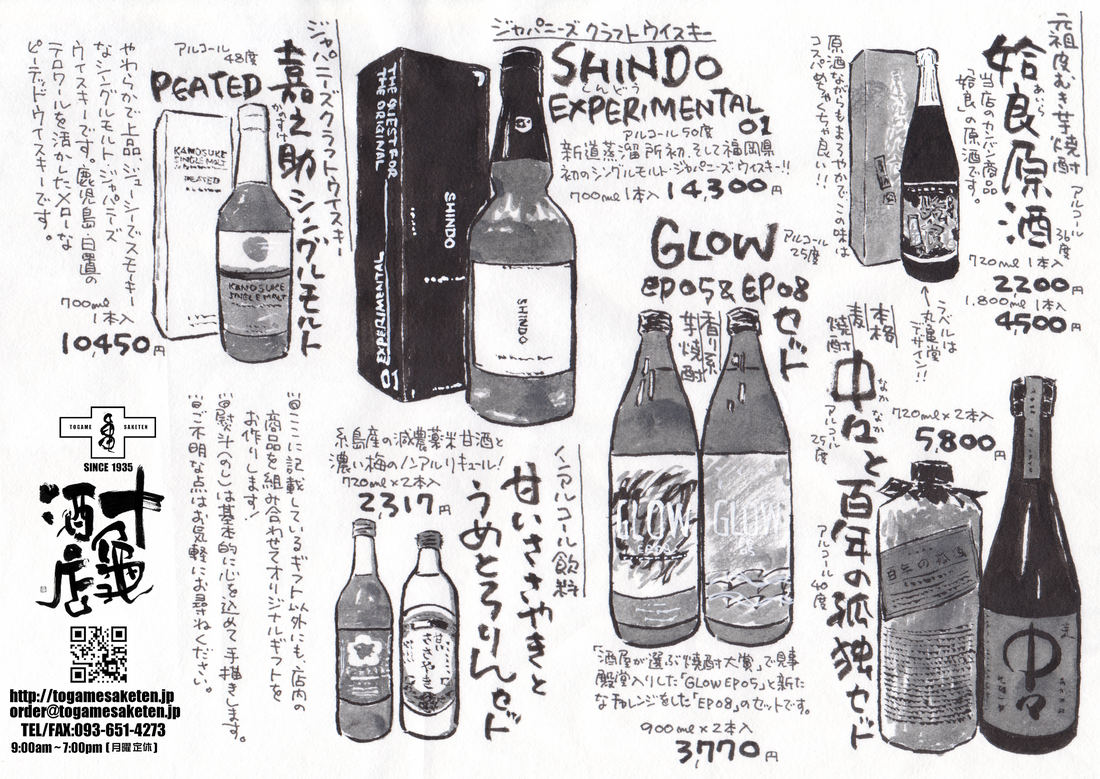 元祖皮むき芋焼酎
アルコール
36度
姶良原酒
あいら
当店のカンバン商品
「姶良」の原酒です。
原酒ながらもまろやかでこの味は
コスパめちゃくちゃ良い!!
720ml 1本入
2200円
1,800ml 1本入
4500円
ラベルは
丸亀堂
デザイン!!
ジャパニーズ クラフトウイスキー
SHINDO
しんどう
EXPERIMENTAL
01
アルコール 50度
新道蒸溜所初、そして福岡県
初のシングルモルト・ジャパニーズウイスキー!!
700ml 1本入 14,300円
THE QUEST FOR
THE ORIGINAL
EXPERIMENTAL
01
SHINDO
SHINDO
ジャパニーズクラフトウイスキー
嘉之助 シングルモルト
かのすけ
アルコール
48度
PEATED
KANOSUKE
SINGLE MALT
PEATED
KANOSUKE
SINGLE MALT
やわらかで上品、ジューシーでスモーキー
なシングルモルト ジャパニーズ
ウイスキーです。鹿児島 日置の
テロワールを活かしたメローな
ピーテッドウイスキーです。
700ml
1本入
10,450円
GLOW
アルコール
25度
EP05 & EP08
セット
香り系
芋焼酎
GLOW
EP05
GLOW
08
「酒屋が選ぶ焼酎大賞」で見事
殿堂入りした「GLOW EP05」と新た
なチャレンジをした「EP08」のセットです。
900ml×2本入
3,770円
本格
麦
焼酎
中々と百年の孤独 セット
なかなか
アルコール
25度
アルコール
40度
720ml×2本入
5,800円
百年の孤独
中々
ノンアルコール飲料
甘いささやきと
うめとろりんセット
糸島産の減農薬米甘酒と
濃い梅のノンアルリキュール!
720ml×2本入
2,317円
甘い
ささやき
◎ここに記載しているギフト以外にも、店内の
商品を組み合わせてオリジナルギフトを
お作りします!
◎熨斗(のし)は基本的に心を込めて手描きします。
◎ご不明な点はお気軽にお尋ねください。
TOGAME SAKETEN
SINCE 1935
十亀
酒店
http://togamesaketen.jp
order@togamesaketen.jp
TEL/FAX:093-651-4273
9:00am~7:00pm (月曜定休)